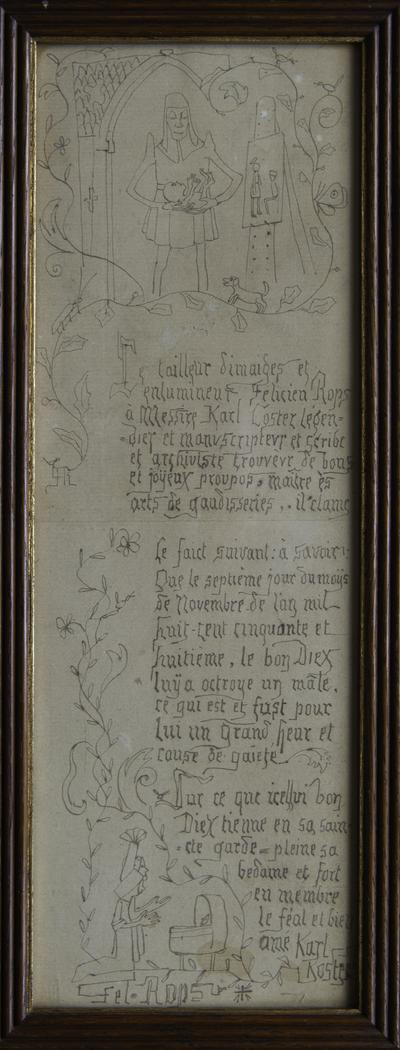 Le tailleur dimaiges et
enlumineur Felicien Rops
à Messire Karl Coster légen-
-dier et manuscripteur et scribe
et archiviste trouveur de bons
et joyeux proupos, maitre ès
arts de gaudisseries,.. il clame
Le faict suivant: à savoir:
Que le septième jour du moys
de Novembre de l'an mil
huit-cent cinquante et
huitième, le bon Diex
luÿ a octroyé un mâle,
ce qui est et fust pour
lui un grand heur et
cause de gaieté
Sur ce que icellui bon
Diex tienne en sa sain-
-cte garde - pleine sa
bedaine et fort
en membre
le féal et bien
amé Karl
Koster
Fel. Rops